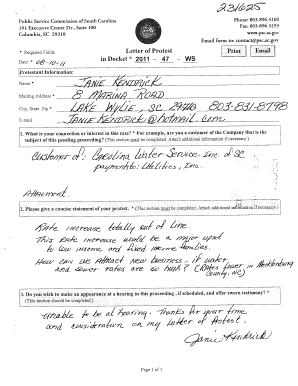 231625
Public Service Commission of South Carolina
101 Executive Center Dr., Suite 100
Columbia, SC 29210
Phone: 803-896-5100
Fax: 803-896-5199
www.psc.sc.gov
Email form to: contact@psc.sc.gov
* Required Fields
Letter of Protest
Print Email
Date * 08-10-11
in Docket * 2011 - 47 - WS
Protestant Information:
Name * JANIE KENDRICK
Mailing Address * 8 MARINA ROAD
City, State Zip * LAKE WYLIE, SC 29710 803-831-8798
E-mail JANIEKENDRICK@hotmail.com
1. What is your connection or interest in this case? * For example, are you a customer of the Company that is the
subject of this pending proceeding? (This section must be completed. Attach additional information if necessary.)
Customer of: Carolina Water Service Inc. of SC
payment to: Utilities, Inc.
2. Please give a concise statement of your protest. * (This section must be completed. Attach additional information if necessary.)
Rate increase totally out of line.
This rate increase would be a major upset
to low income and fixed income families.
How can we attract new business - if water
and sewer rates are so high? (Rates lower in Mecklenburg
County, NC)
3. Do you wish to make an appearance at a hearing in this proceeding, if scheduled, and offer sworn testimony? *
(This section should be completed.)
unable to be at hearing. Thanks for your time
and consideration on my Letter of Protest.
Janie Kendrick
Page 1 of 1